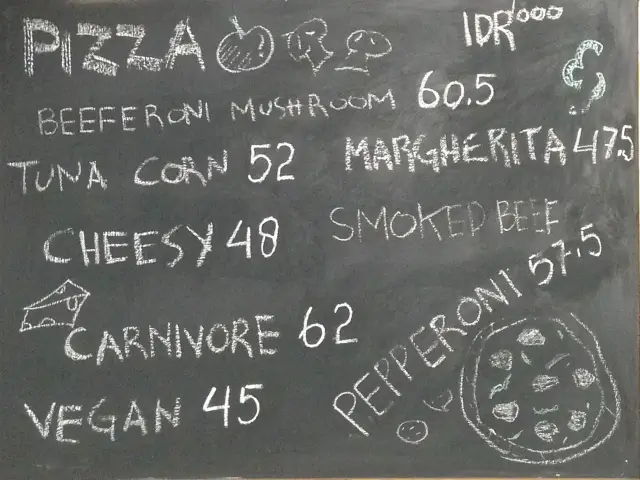 PIZZA
IDR '000
BEEFERONI MUSHROOM 60.5
TUNA CORN 52
MARGHERITA 47.5
CHEESY 48
SMOKED BEEF
57.5
CARNIVORE 62
PEPPERONI
VEGAN 45